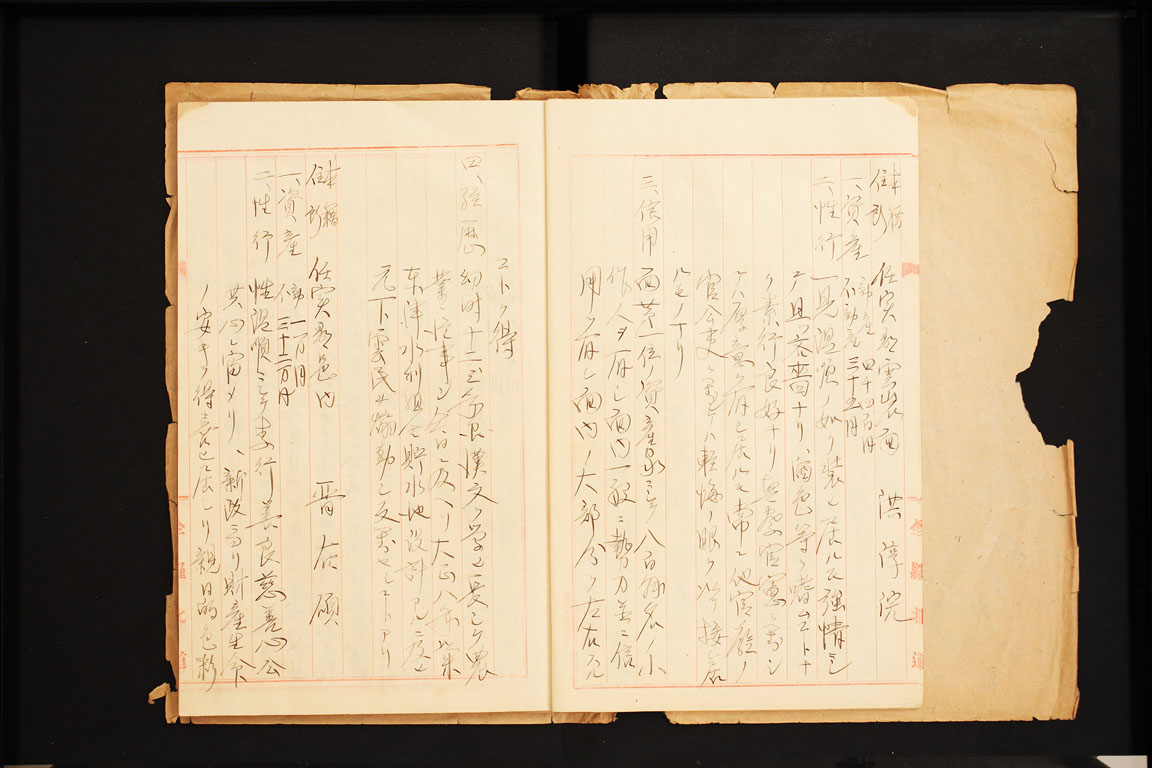 本籍
住所 任実郡雲岩面 洪淳院
一、資産 動産 四十四百円
不動産 三十五円
二、性行 一見温順ノ如ク装ヒ居ルモ強情ニシ
テ且吝嗇ナリ、酒色等ヲ嗜ムコトナ
ク素行良好ナリ 官憲ニ対シ
テハ厚意ヲ有シ居ルモ常ニ他官庁ノ
官公吏ニ対シテハ軽侮ノ眼ヲ以テ接シ居
ルモノナリ
三、信用 面第一位ノ資産家ニシテ八百余名ノ小
作人ヲ有シ面内一般ニ勢力並ニ信
用ヲ有シ面内ノ大部分ヲ左右シ
コトヲ得
四、経歴 幼時十二三年間漢文ヲ学ヒ長シテ農
業ニ従事シ今日ニ及ヘリ大正八年業
東津水利組合貯水地設計ニ
元下雲民ヲ煽動シ反対セシコトアリ
本籍
住所 任実郡邑内 晋右碩
一、資産 動 一万円
不動 三十二万円
二、性行 性温順ニシテ孝行善良慈善心公
共心ニ富メリ、新政ニヨリ財産生命
ノ安キヲ得喜ヒ居レリ親日的色彩
全羅北道
全羅北道